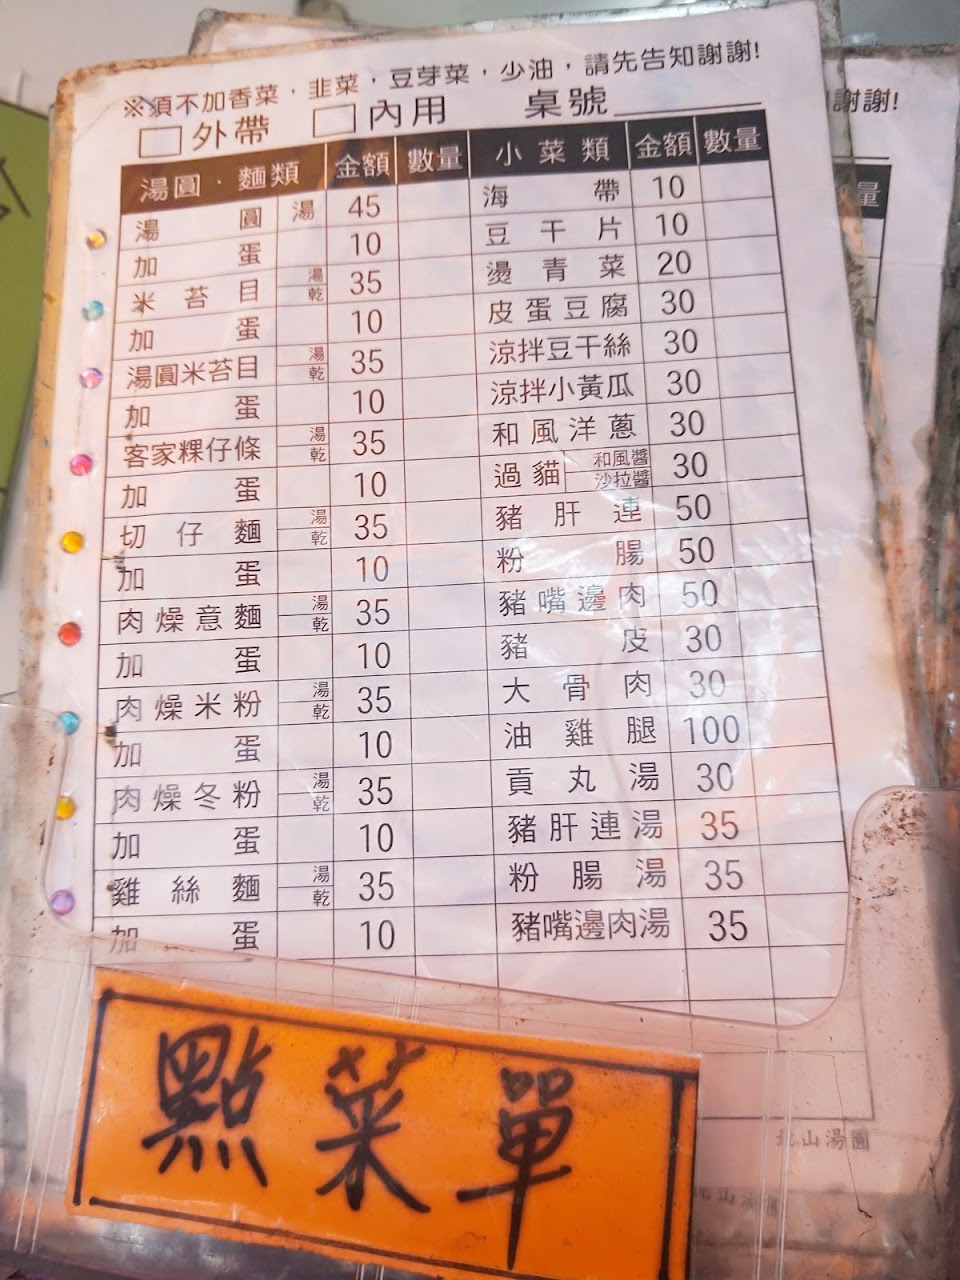 ※須不加香菜，韭菜，豆芽菜，少油，請先告知謝謝!
□外帶 □內用 桌號
湯圓．麵類 金額 數量 小菜類 金額 數量
湯圓 湯 45 海帶 10
加蛋 10 豆干片 10
米苔目 湯 乾 35 燙青菜 20
加蛋 10 皮蛋豆腐 30
湯圓米苔目 湯 乾 35 涼拌豆干絲 30
加蛋 10 涼拌小黃瓜 30
客家粿仔條 湯 乾 35 和風洋蔥 30
加蛋 10 過貓 和風醬 沙拉醬 30
切仔麵 湯 乾 35 豬肝連 50
加蛋 10 粉腸 50
肉燥意麵 湯 乾 35 豬嘴邊肉 50
加蛋 10 豬皮 30
肉燥米粉 湯 乾 35 大骨肉 30
加蛋 10 油雞腿 100
肉燥冬粉 湯 乾 35 貢丸湯 30
加蛋 10 豬肝連湯 35
雞絲麵 湯 乾 35 粉腸湯 35
加蛋 10 豬嘴邊肉湯 35
點菜單
謝謝!
量
北山湯圓
北山湯圓